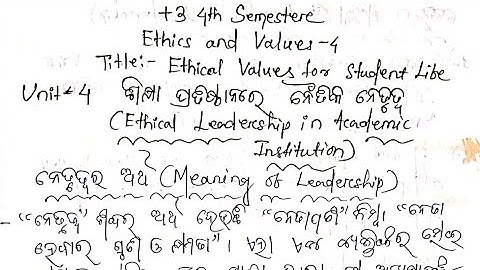 +3 4th Semestere
Ethics and Values-4
Title:- Ethical Values for Student Libe
Unit-4 ଶିକ୍ଷା ପ୍ରତିଷ୍ଠାନରେ ନୈତିକ ନେତୃତ୍ୱ
(Ethical Leadership in Academic
Institution)
ନେତୃତ୍ୱର ଅର୍ଥ (Meaning of Leadership)
- "ନେତୃତ୍ୱ" ଶବ୍ଦର ଅର୍ଥ ହେଉଛି "ନେତାପଣ" କିମ୍ବା "ନେତା
ହେବାର ଗୁଣ ଓ କ୍ଷମତା"। ଏହା ଏକ